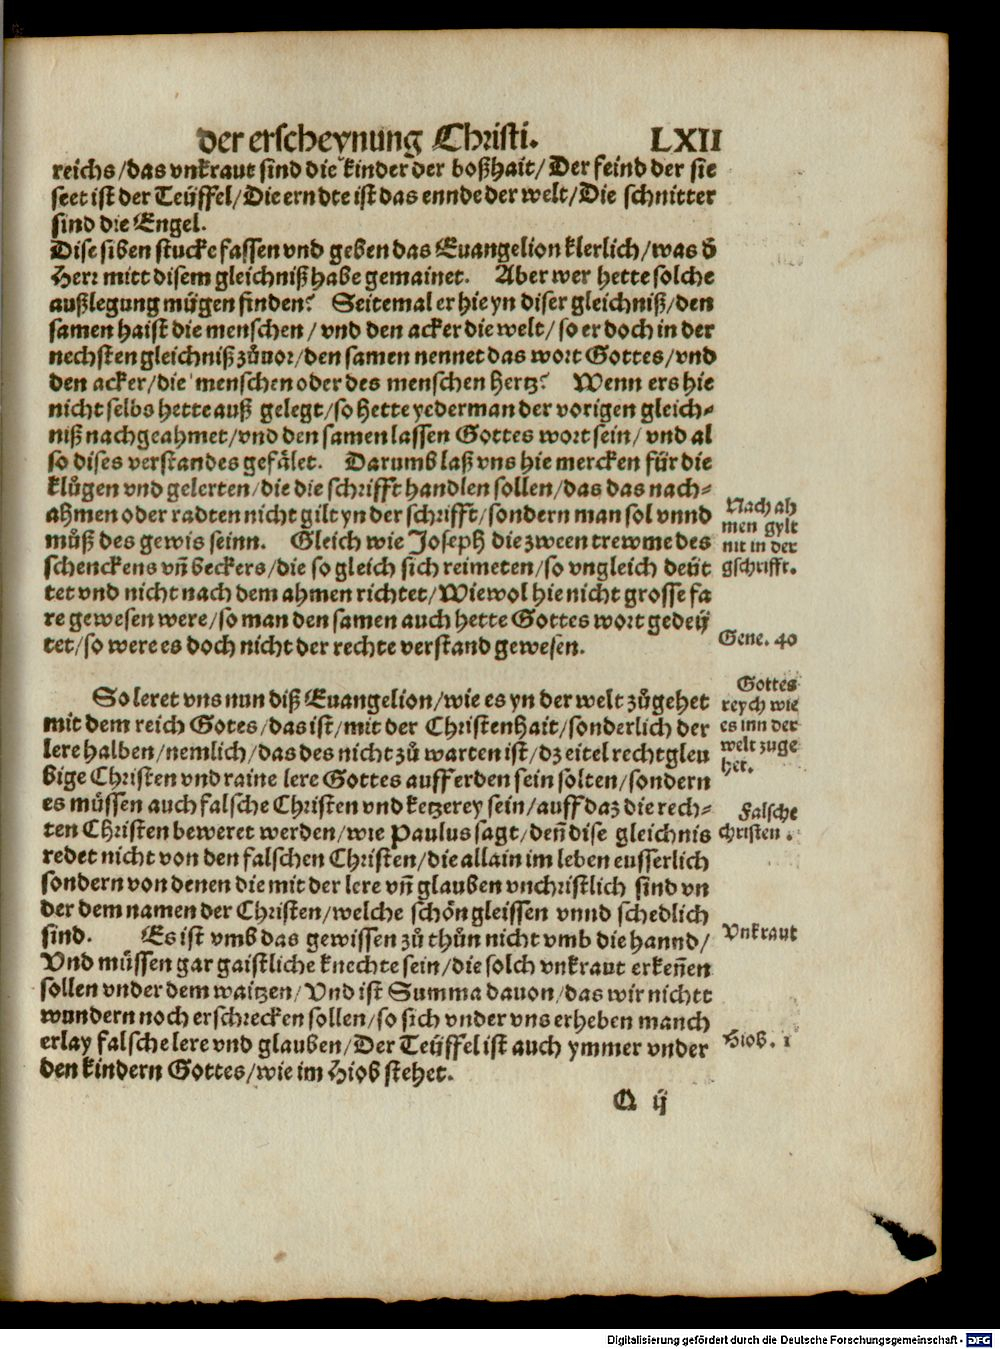 der erscheynung Christi. LXII
reichs/das vnkraut sind die kinder der boßhait/Der feind der sie
seet ist der Teüffel/Die erndte ist das ennde der welt/Die schnitter
sind die Engel.
Dise siben stucke fassen vnd geben das Euangelion klerlich/was d̄
Herr mitt disem gleichniß habe gemainet. Aber wer hette solche
außlegung mügen finden? Seitemal er hie yn diser gleichniß/den
samen haist die menschen/vnd den acker die welt/so er doch in der
nechsten gleichniß zůuor/den samen nennet das wort Gottes/vnd
den acker/die menschen oder des menschen hertz? Wenn ers hie
nicht selbs hette auß gelegt/so hette yederman der vorigen gleich-
niß nachgeahmet/vnd den samen lassen Gottes wort sein/vnd al
so dises verstandes gefälet. Darumb laß vns hie mercken für die
klůgen vnd gelerten/die die schrifft handlen sollen/das das nach-
ahmen oder radten nicht gilt yn der schrifft/sondern man sol vnnd
můß des gewis seinn. Gleich wie Joseph die zween trewme des
schenckens vñ beckers/die so gleich sich reimeten/so vngleich deüt
tet vnd nicht nach dem ahmen richtet/Wiewol hie nicht grosse fa
re gewesen were/so man den samen auch hette Gottes wort gedeÿ
tet/so were es doch nicht der rechte verstand gewesen.
Nach ah
men gylt
nit in der
gschrifft.
Gene. 40
So leret vns nun diß Euangelion/wie es yn der welt zůgehet
mit dem reich Gotes/das ist/mit der Christenhait/sonderlich der
lere halben/nemlich/das des nicht zů warten ist/dz eitel rechtgleu
bige Christen vnd raine lere Gottes auff erden sein solten/sondern
es müssen auch falsche Christen vnd ketzerey sein/auff daz die rech-
ten Christen beweret werden/wie Paulus sagt/deñ dise gleichnis
redet nicht von den falschen Christen/die allain im leben eusserlich
sondern von denen die mit der lere vñ glauben vnchristlich sind vn
der dem namen der Christen/welche schön gleissen vnnd schedlich
sind. Es ist vmb das gewissen zů thůn nicht vmb die hannd/
Vnd müssen gar gaistliche knechte sein/die solch vnkraut erkeñen
sollen vnder dem waitzen/Vnd ist Summa dauon/das wir nichtt
wundern noch erschrecken sollen/so sich vnder vns erheben manch
erlay falsche lere vnd glauben/Der Teüffel ist auch ymmer vnder
den kindern Gottes/wie im Hiob stehet.
Gottes
reych wie
es inn der
welt zuge
het.
Falsche
christen.
Vnkraut
Hiob. 1
Q ij
Digitalisierung gefördert durch die Deutsche Forschungsgemeinschaft - DFG